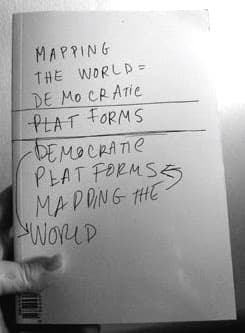 MAPPING
THE WORLD =
DEMOCRATIC
PLATFORMS
DEMOCRATIC
PLATFORMS
MAPPING THE
WORLD